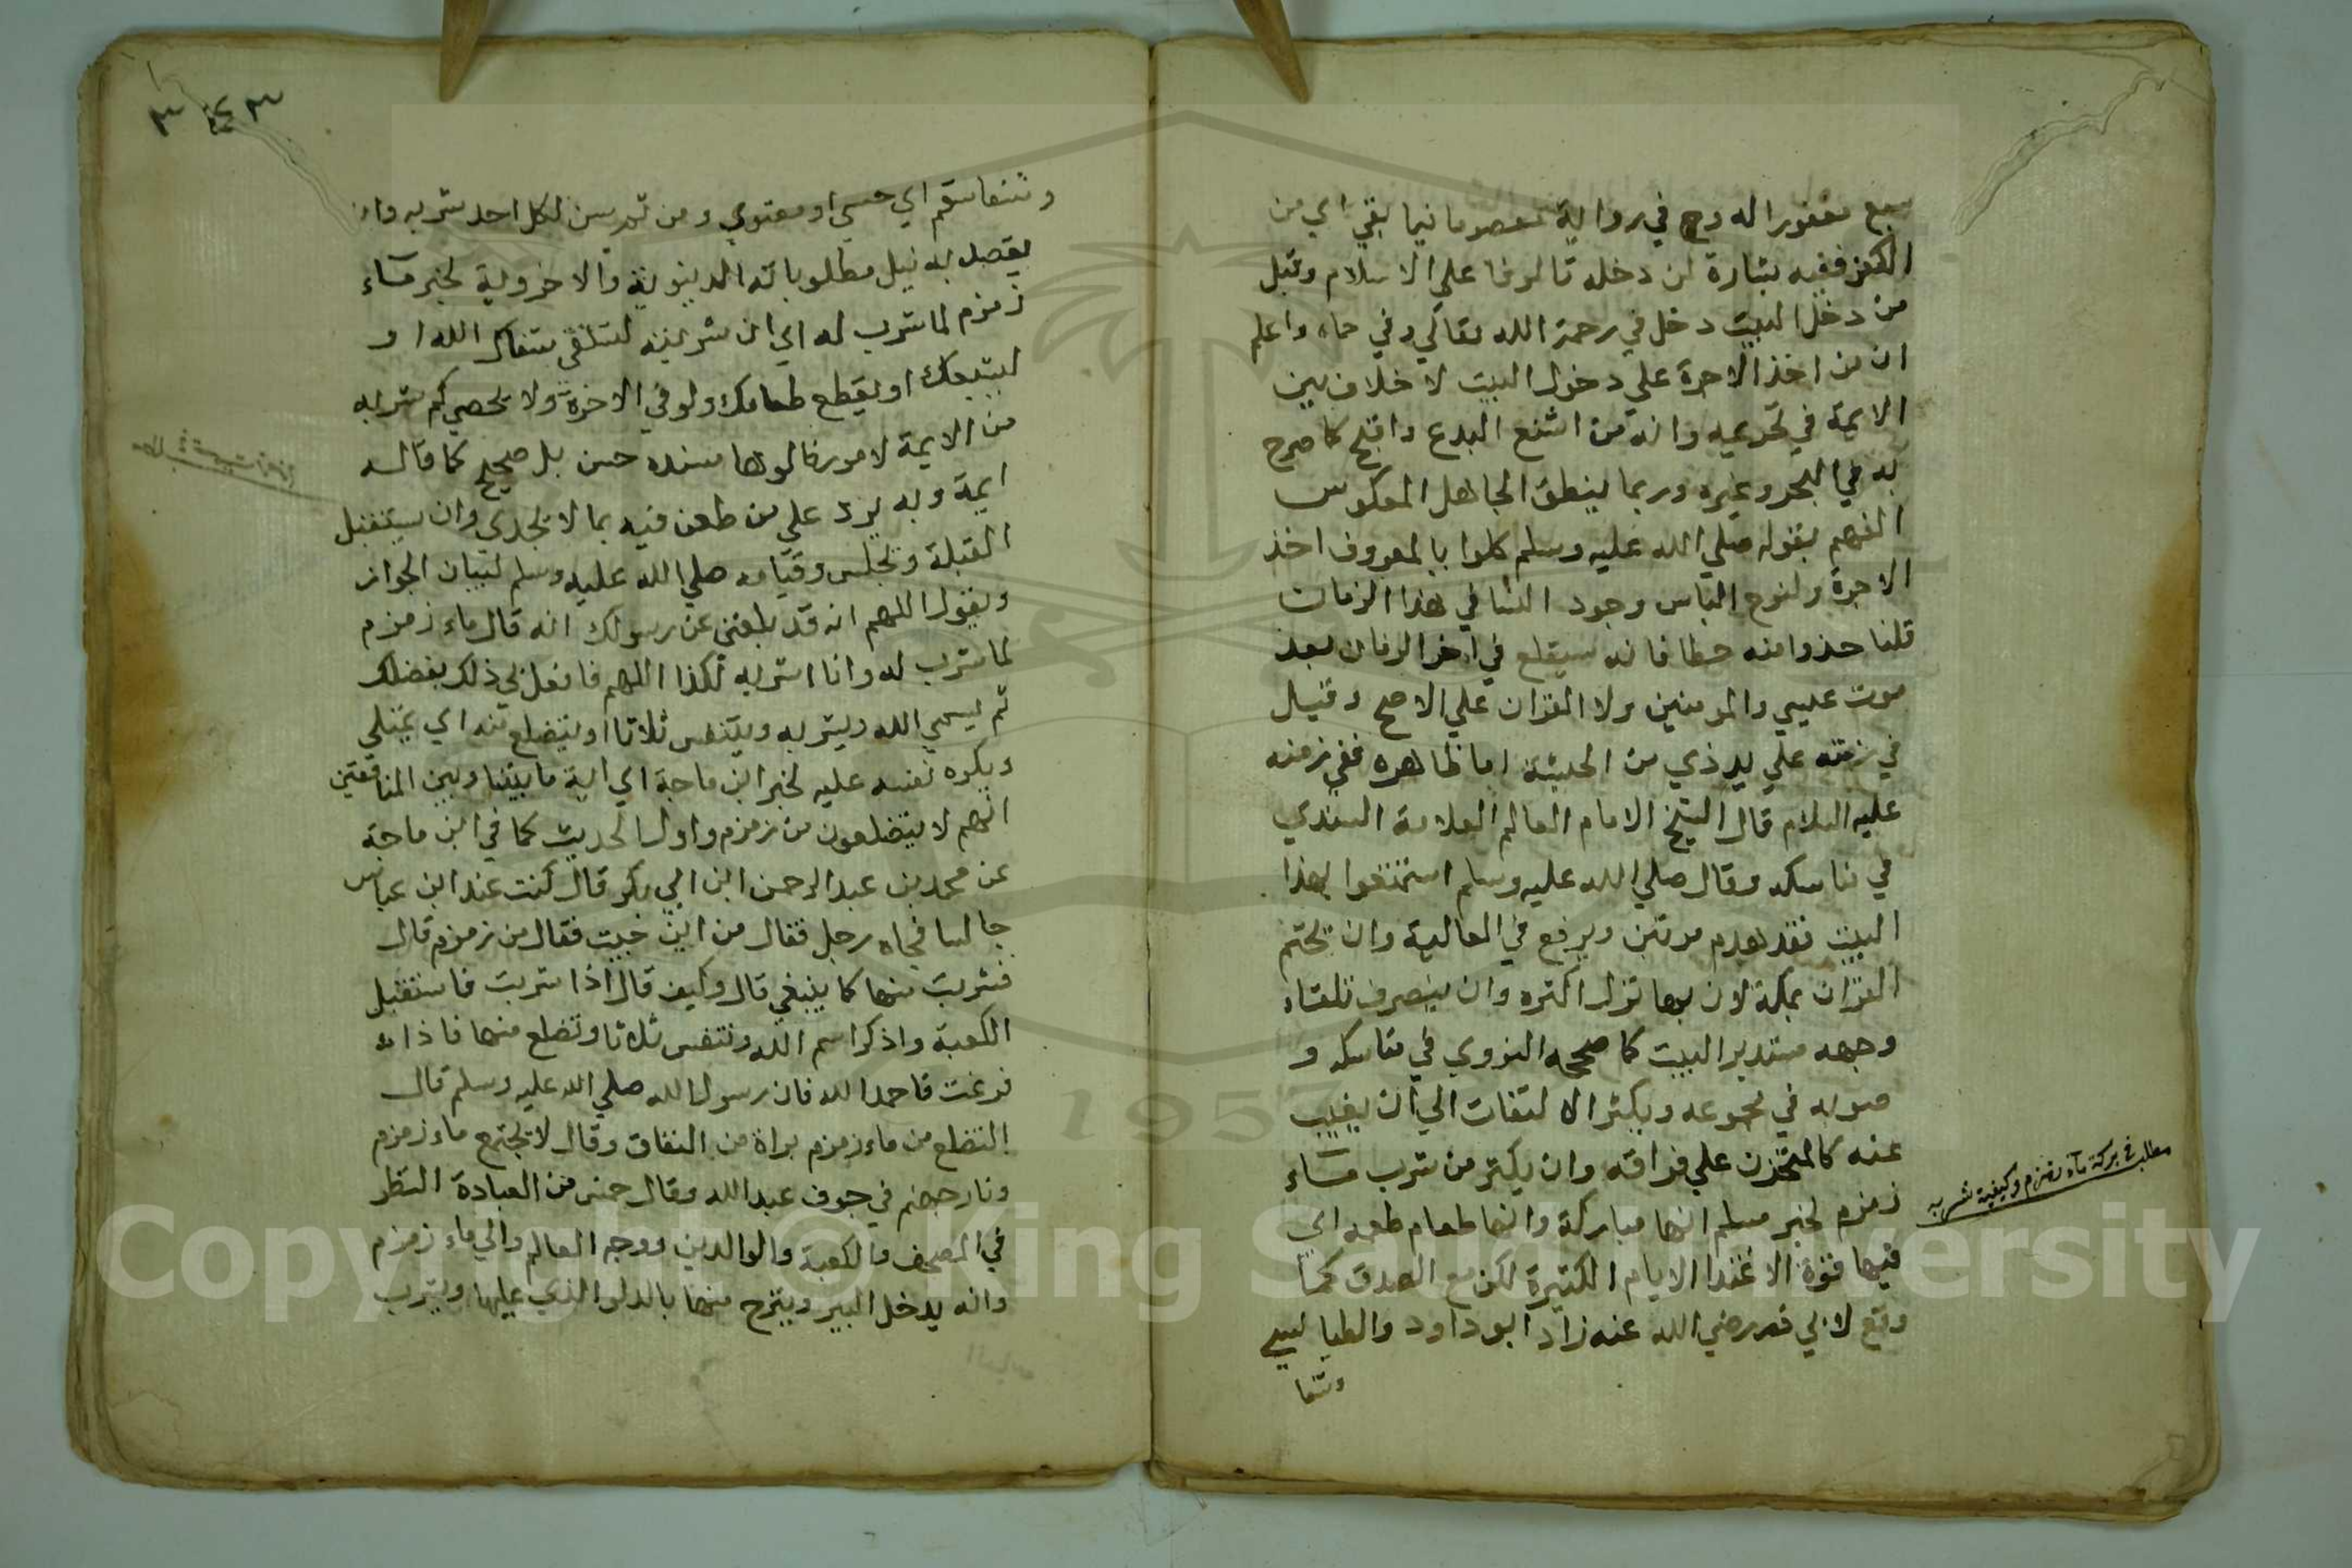 مغفورا له وفي رواية معصوما فيما بقي اي من
الكفر ففيه بشارة لمن دخله تا لوفا علي الاسلام وقيل
من دخل البيت دخل في رحمة الله تعالي وفي حماه واعلم
ان من اخذ الاجرة علي دخول البيت لا خلاف بين
الايمة في تحريمه وانه من اشنع البدع واقبح كما صرح
به في البحر وغيره وربما ينطق الجاهل المعكوس
الفهم بقوله صلي الله عليه وسلم كلوا بالمعروف اخذ
الاجرة ولنوح الناس وجود في هذا الزمان
قلنا خذوا منه حظا فانه سيقلع في اخر الزمان بعد
موت عيسي والمومنين ولا القران علي الاصح وقيل
في زمنه علي يد ذي من الحبشة ظاهره ففي زمنه
عليه السلام قال الشيخ الامام العالم العلامة السندي
في مناسكه وقال صلي الله عليه وسلم استمتعوا بهذا
البيت فقد هدم مرتين ويرفع في الثالثة وان يختم
القران بمكة لان بها نزل اكثره وان ينصرف تلقاء
وجهه مستدبر البيت كما صححه النووي في مناسكه و
صوبه في مجموعه ويكثر الالتفات الي ان يغيب
عنه كالمتحزن علي فراقه وان يكثر من شرب مآء
زمزم لخبر مسلم انها مباركة وانها طعام طعم اي
فيها قوة الاغتدا الايام الكثيرة لكن مع الصدق كما
وقع لابي ذر رضي الله عنه زاد ابو داود والطيالسي
وشفا
مطلب في بركة مآء زمزم وكيفية شربه
٣٤٣
وشفا سقم اي حسي او معنوي ومن ثم يسن لكل احد شربه وان
يقصد به نيل مطلوباته الدنيوية والاخروية لخبر مآء
زمزم لما شرب له اي ان شربته لتشفي شفاك الله او
ليشبعك او يقطع ظماك ولو في الاخرة ولا يحصي كم شربه
من الايمة لامور نالوها سنده حسن بل صحيح كما قاله
ايمة وبه يرد علي من طعن فيه بما لا يجدي وان يستقبل
القبلة ويجلس وقيامه صلي الله عليه وسلم لبيان الجواز
ويقول اللهم انه قد بلغني عن رسولك انه قال ماء زمزم
لما شرب له وانا اشربه لكذا اللهم فافعل لي ذلك بفضلك
ثم يسمي الله ويشربه ويتنفس ثلاثا ويتضلع منه اي يمتلي
ويكره نفسه عليه لخبر ابن ماجة اي اية ما بيننا وبين المنافقين
انهم لا يتضلعون من زمزم واول الحديث كما في ابن ماجة
عن محمد بن عبد الرحمن ابن ابي بكر قال كنت عند ابن عباس
جالسا فجاه رجل فقال من اين جيت فقال من زمزم قال
فشربت منها كما ينبغي قال وكيف قال اذا شربت فاستقبل
الكعبة واذكر اسم الله وتنفس ثلاثا وتضلع منها فاذا
فرغت فاحمد الله فان رسول الله صلي الله عليه وسلم قال
التضلع من ماء زمزم براة من النفاق وقال لا يجتمع ماء زمزم
ونار جهنم في جوف عبد الله وقال خمس من العبادة النظر
في المصحف والكعبة والوالدين ووجه العالم والي ماء زمزم
وانه يدخل البير وينزح منها بالدلو الذي عليها ويشرب
Copyright © King Saud University
1957